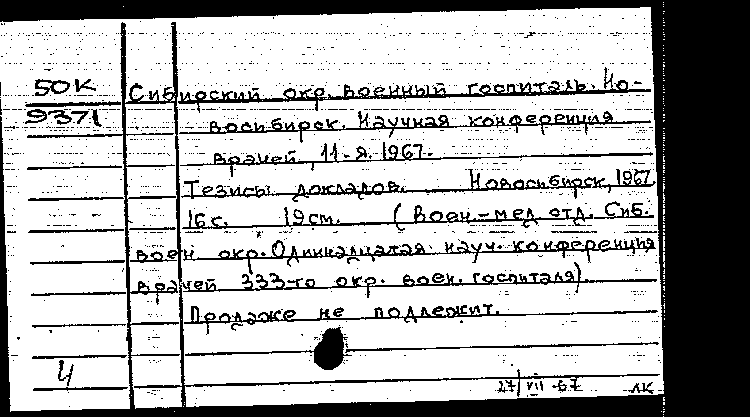 50К Сибирский окр. военный госпиталь. Но-
9371 восибирск. Научная конференция
врачей, 11-я. 1967.
Тезисы докладов. Новосибирск, 1967.
16с. 19см. (Воен-мед. отд. Сиб.
воен. окр. Одиннадцатая науч. конференция
врачей 333-го окр. воен. госпиталя).
Продаже не подлежит.
Ц
27/VII-67 ЛК